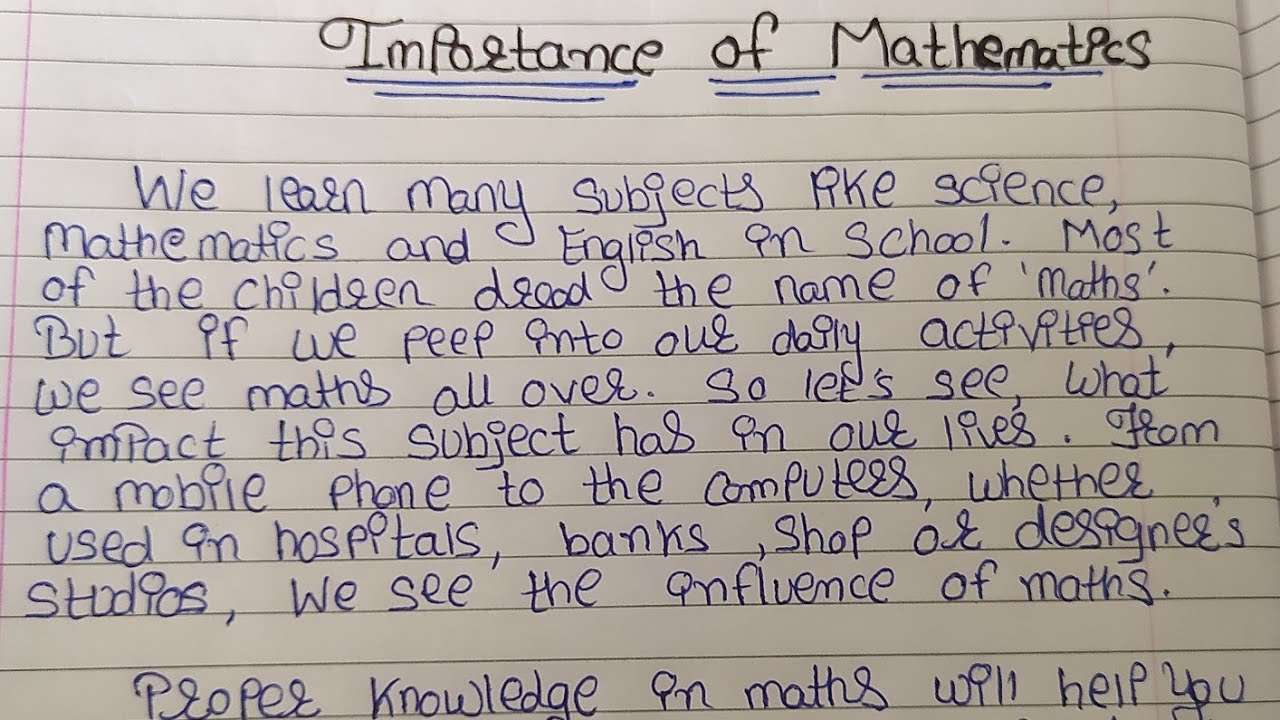 Importance of Mathematics
We learn many subjects like science,
mathematics and English in school. Most
of the children dread the name of 'maths'.
But if we peep into our daily activities,
we see maths all over. So let's see, what
impact this subject has in our lives. From
a mobile phone to the computers, whether
used in hospitals, banks, shop or designer's
studios, we see the influence of maths.
Proper knowledge in maths will help you